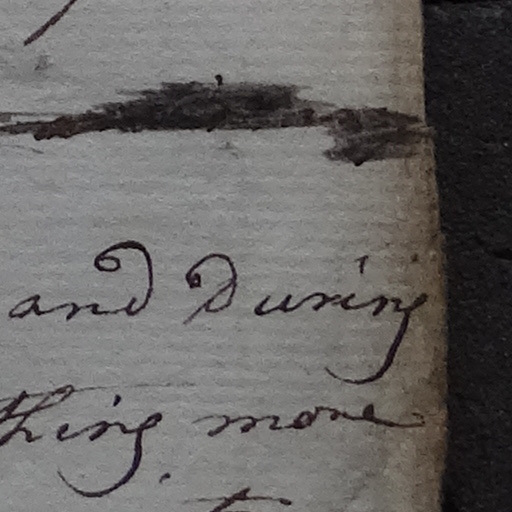 and During
thing more